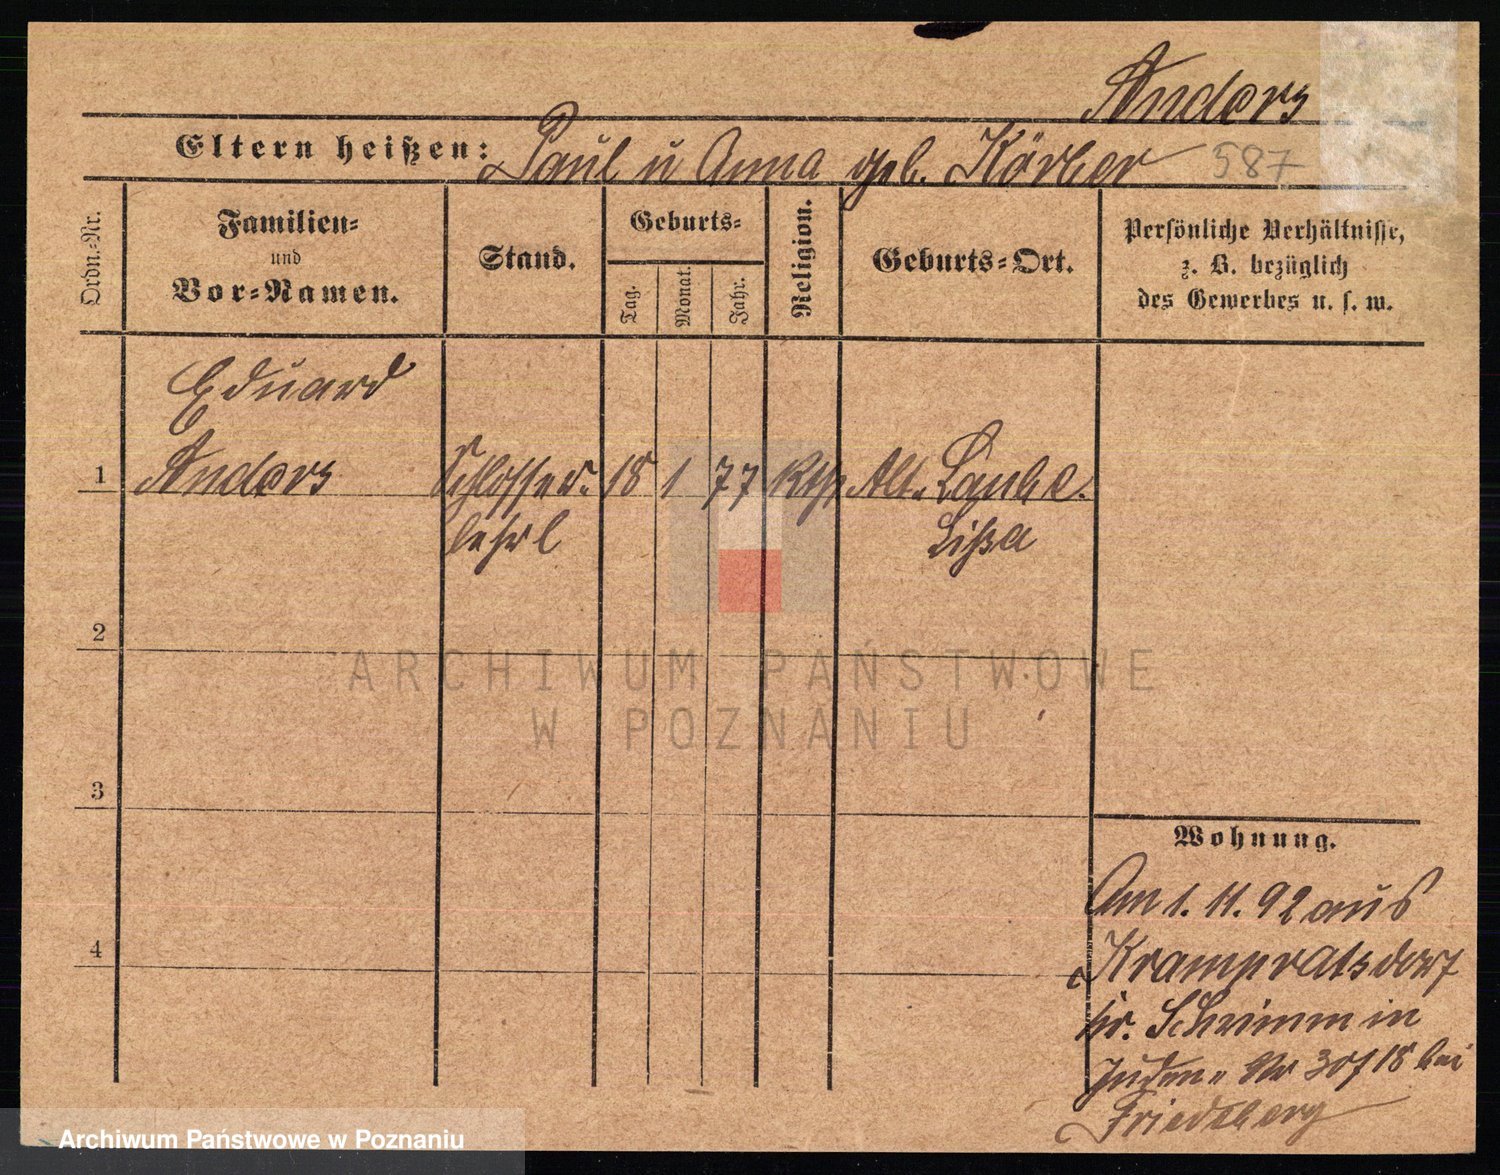 Anders
Eltern heißen: Paul u Anna geb. Körber 587
Ordn.-Nr.
Familien-
und
Vor-Namen.
Stand.
Geburts-
Tag.
Monat.
Jahr.
Religion.
Geburts-Ort.
Persönliche Verhältnisse,
z. B. bezüglich
des Gewerbes u. s. w.
Eduard
1 Anders Schlosser- 18 1 77 Kth Alt-Laube.
lehrl Lißa
2
3
4
Wohnung.
Am 1. 11. 92 aus
Krampratsdorf
Kr. Schwimm in
Juden- Nr 30/18 bei
Friedeberg
ARCHIWUM PAŃSTWOWE
W POZNANIU
Archiwum Państwowe w Poznaniu